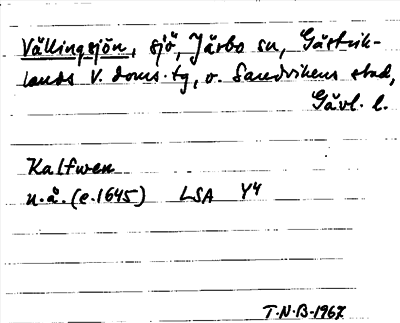 Vällingsjön, sjö, Järbo sn, Gästrik-
lands V. doms. tg, o. Sandvikens stad,
Gävl. l.
Kalfwen
n.ä. (e. 1645) LSA Y4
T.N.B-1967